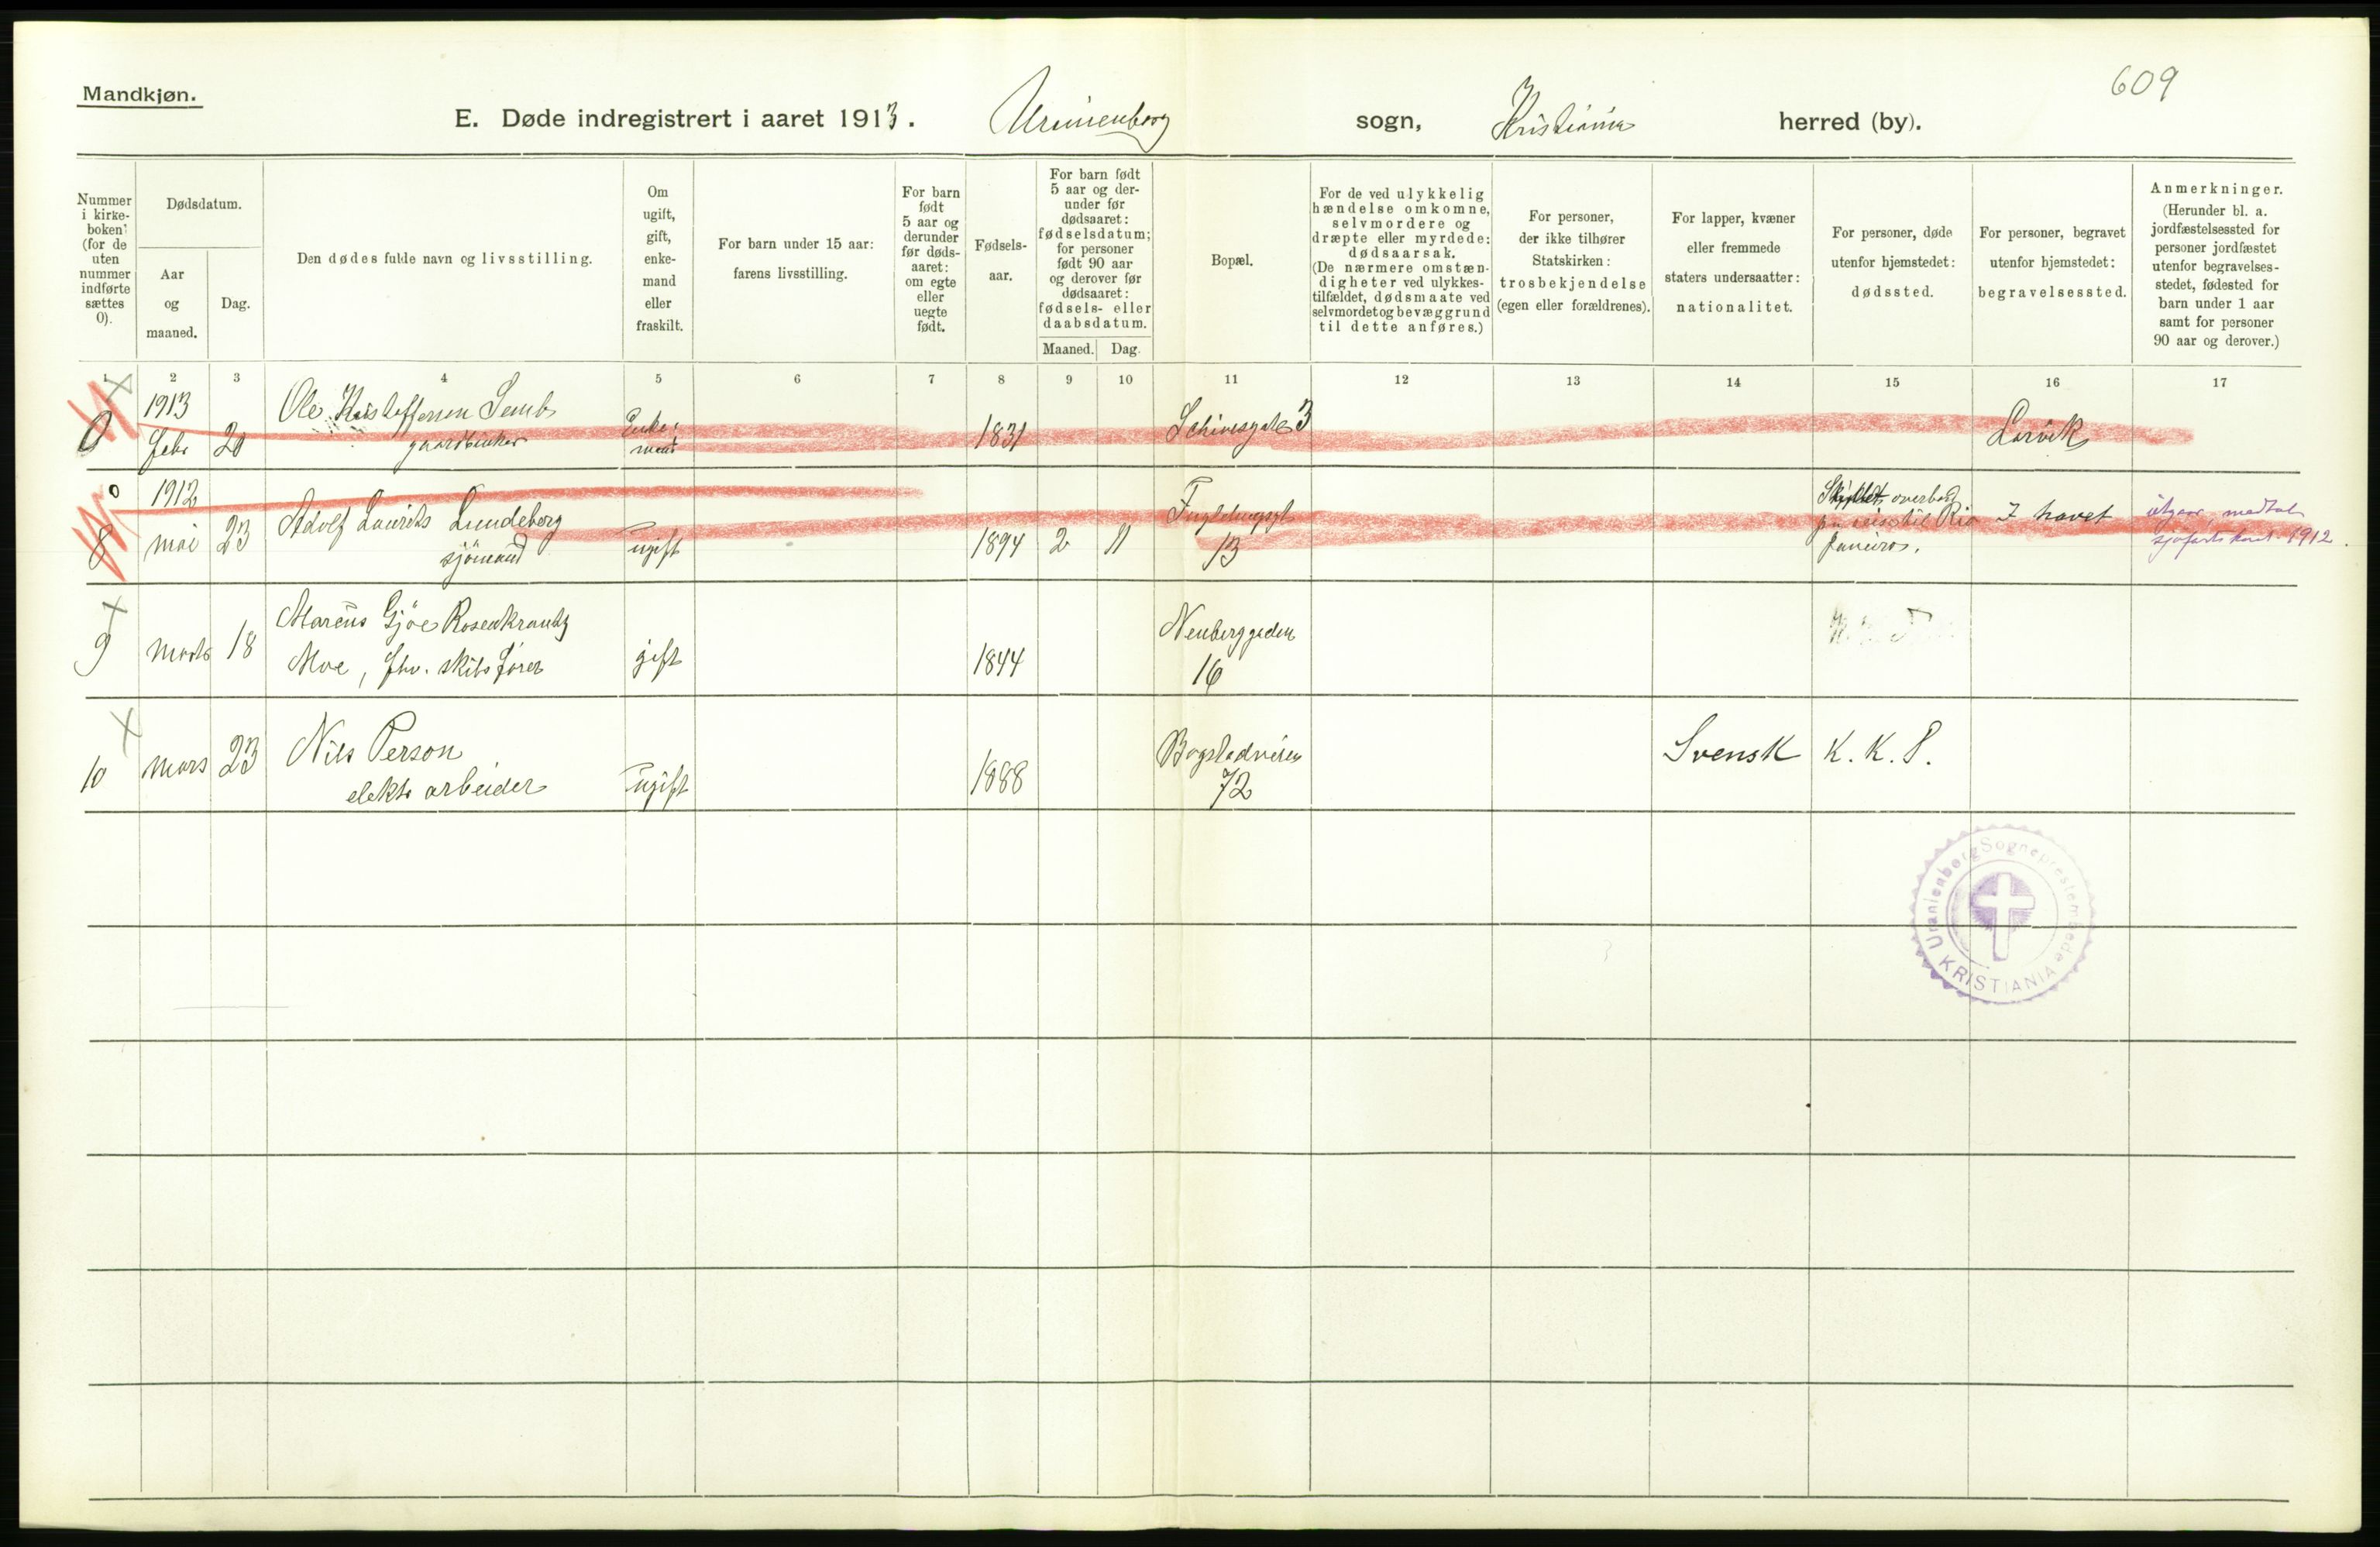 Mandkjøn.
609
E. Døde indregistrert i aaret 1913. Uranienborg sogn, Kristiania herred (by).
Nummer i kirke-boken (for de uten nummer indførte sættes 0).
Dødsdatum.
Aar og maaned.
Dag.
Den dødes fulde navn og livsstilling.
Om ugift, gift, enke-mand eller fraskilt.
For barn under 15 aar: farens livsstilling.
For barn født 5 aar og derunder før døds-aaret: om egte eller uegte født.
Fødsels-aar.
For barn født 5 aar og der-under før dødsaaret: fødselsdatum; for personer født 90 aar og derover før dødsaaret: fødsels- eller daabsdatum.
Maaned. Dag.
Bopæl.
For de ved ulykkelig hændelse omkomne, selvmordere og dræpte eller myrdede: dødsaarsak. (De nærmere omstæn-digheter ved ulykkes-tilfældet, dødsmaate ved selvmordet og bevæggrund til dette anføres.)
For personer, der ikke tilhører Statskirken: trosbekjendelse (egen eller forældrenes).
For lapper, kvæner eller fremmede staters undersaatter: nationalitet.
For personer, døde utenfor hjemstedet: dødssted.
For personer, begravet utenfor hjemstedet: begravelsessted.
Anmerkninger. (Herunder bl. a. jordfæstelsessted for personer jordfæstet utenfor begravelses-stedet, fødested for barn under 1 aar samt for personer 90 aar og derover.)
1 2 3 4 5 6 7 8 9 10 11 12 13 14 15 16 17
0 1913 Febr 20 Ole Kristoffersen Semb gaardbruker Enke-mand 1831 Schivesgate 3 Larvik
0
8 1912 mai 23 Adolf Laurits Lundeberg sjömand ugift 1894 2 11 Fuglehaugsgt 13 Skyllet overbord paa reise til Rio Janeiro. I havet utgaar medtat sjøfarts kont. 1912
9 Marts 18 Marcus Gjöe Rosenkrantz Moe, fhv. skibsfører gift 1844 Neuberggaden 16
10 Mars 23 Nils Person elektr arbeider ugift 1888 Bogstadveien 72 Svensk K. K. S.
Uranienborg Sogneprestembede
KRISTIANIA